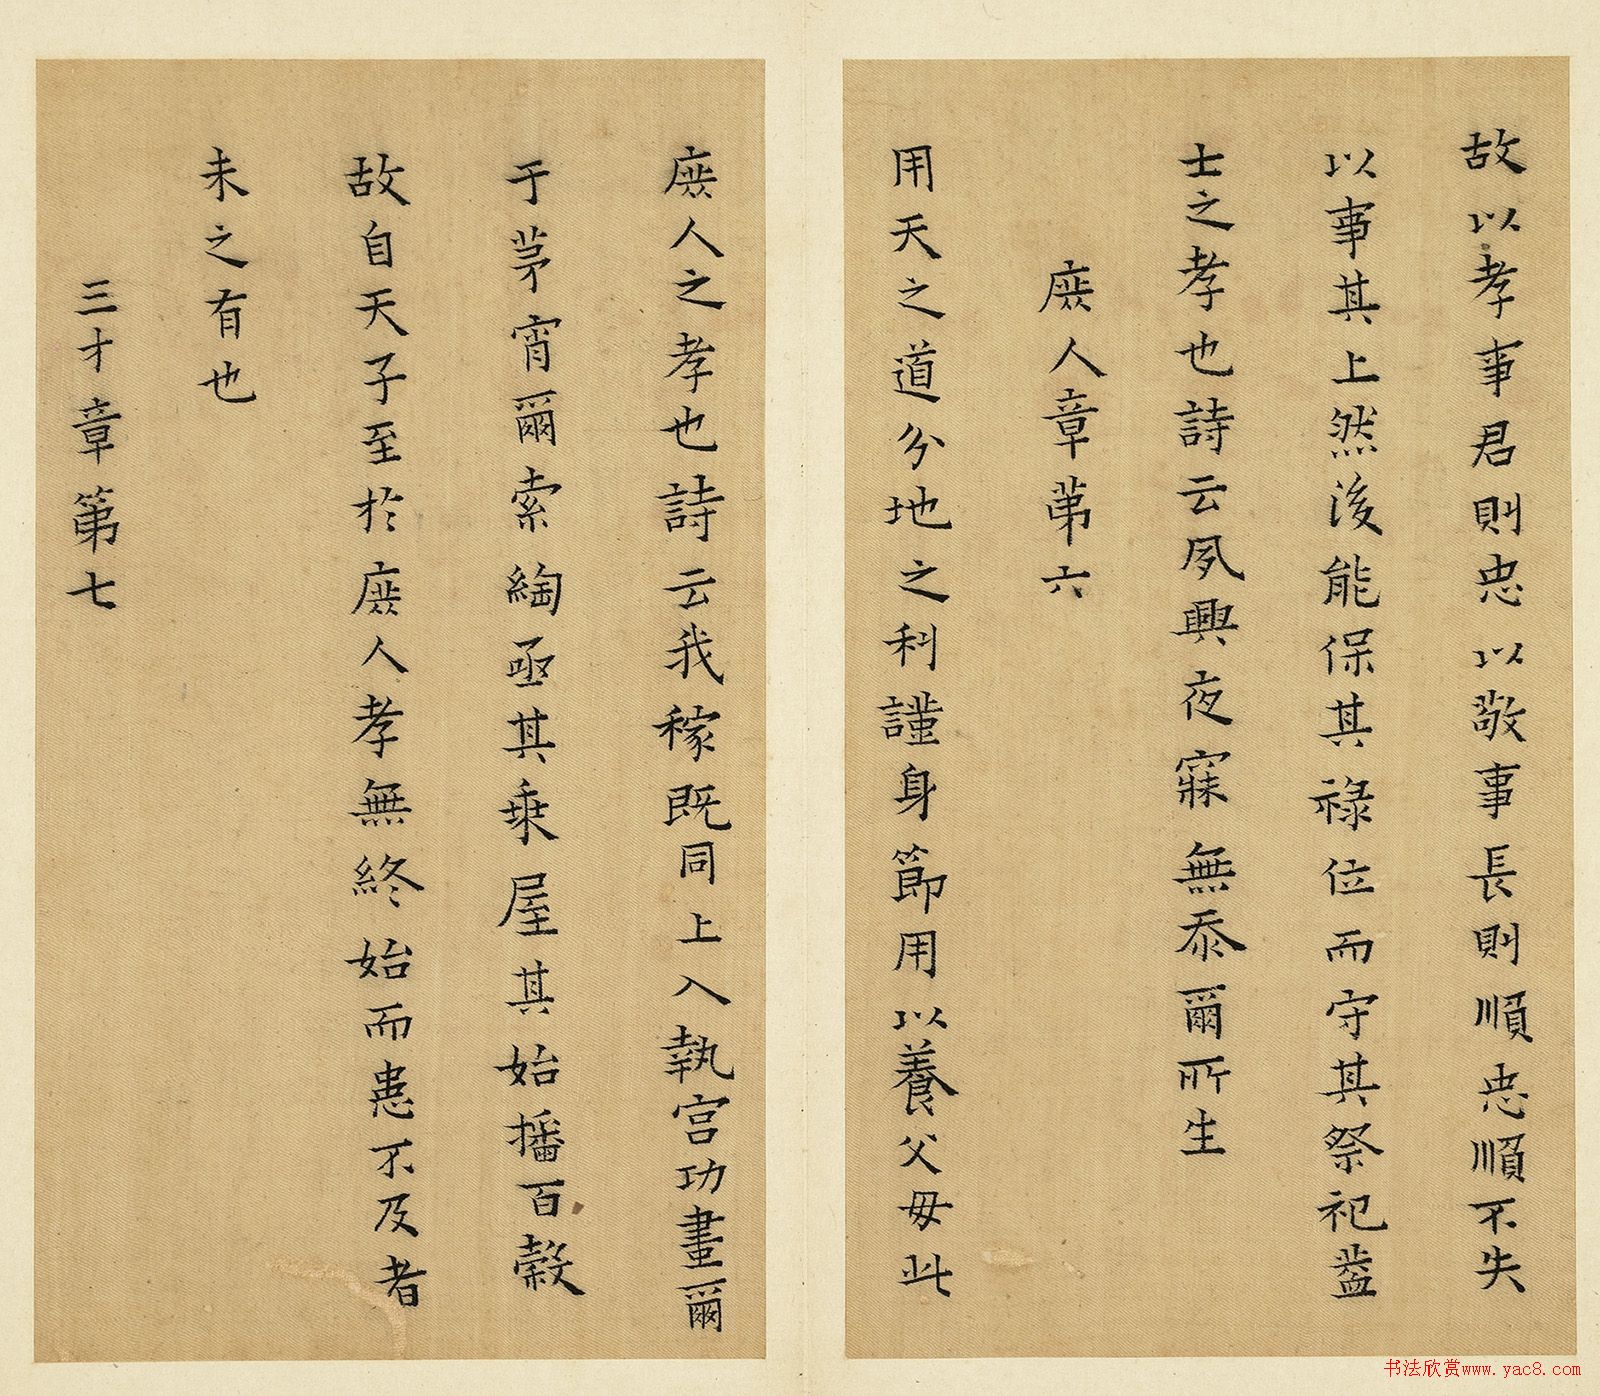 故以孝事君則忠以敬事長則順忠順不失
以事其上然後能保其祿位而守其祭祀蓋
士之孝也詩云夙興夜寐無忝爾所生
庶人章第六
用天之道分地之利謹身節用以養父母此
庶人之孝也詩云我稼既同上入執宮功晝爾
于茅宵爾索綯亟其乘屋其始播百穀
故自天子至於庶人孝無終始而患不及者
未之有也
三才章第七
书法欣赏www.yac8.com